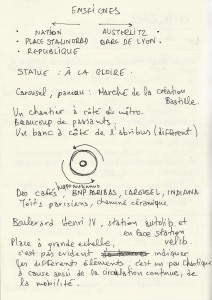 ENSEIGNES
• NATION
• PLACE STALINGRAD
• REPUBLIQUE
AUSTERLITZ •
GARE DE LYON •
STATUE : À LA GLOIRE.
Carousel, panneau : Marché de la création
Bastille.
Un chantier à côté du métro.
Beaucoup de passants.
Un banc à côté de l'abribus (different)
Des cafés, BNP PARIBAS, CAROUSEL, INDIANA
Toits parisiens, cheminé céramique
Boulevard Henri IV, station autolib et
en face station
velib.
Place à grande echelle,
c'est pas evident indiquer
les differents éléments, c'est un peu chaotique
à cause aussi de la circulation continue, de
la mobilité.